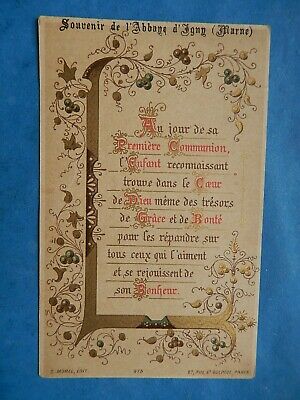 Souvenir de l'Abbaye d'Igny (Marne)
Au jour de sa
Première Communion,
l'Enfant reconnaissant
trouve dans le Cœur
de Dieu même des trésors
de Grâce et de Bonté
pour les répandre sur
tous ceux qui l'aiment
et se rejouissent de
son Bonheur.
MOREL, EDIT.
RUE St SULPICE, PARIS